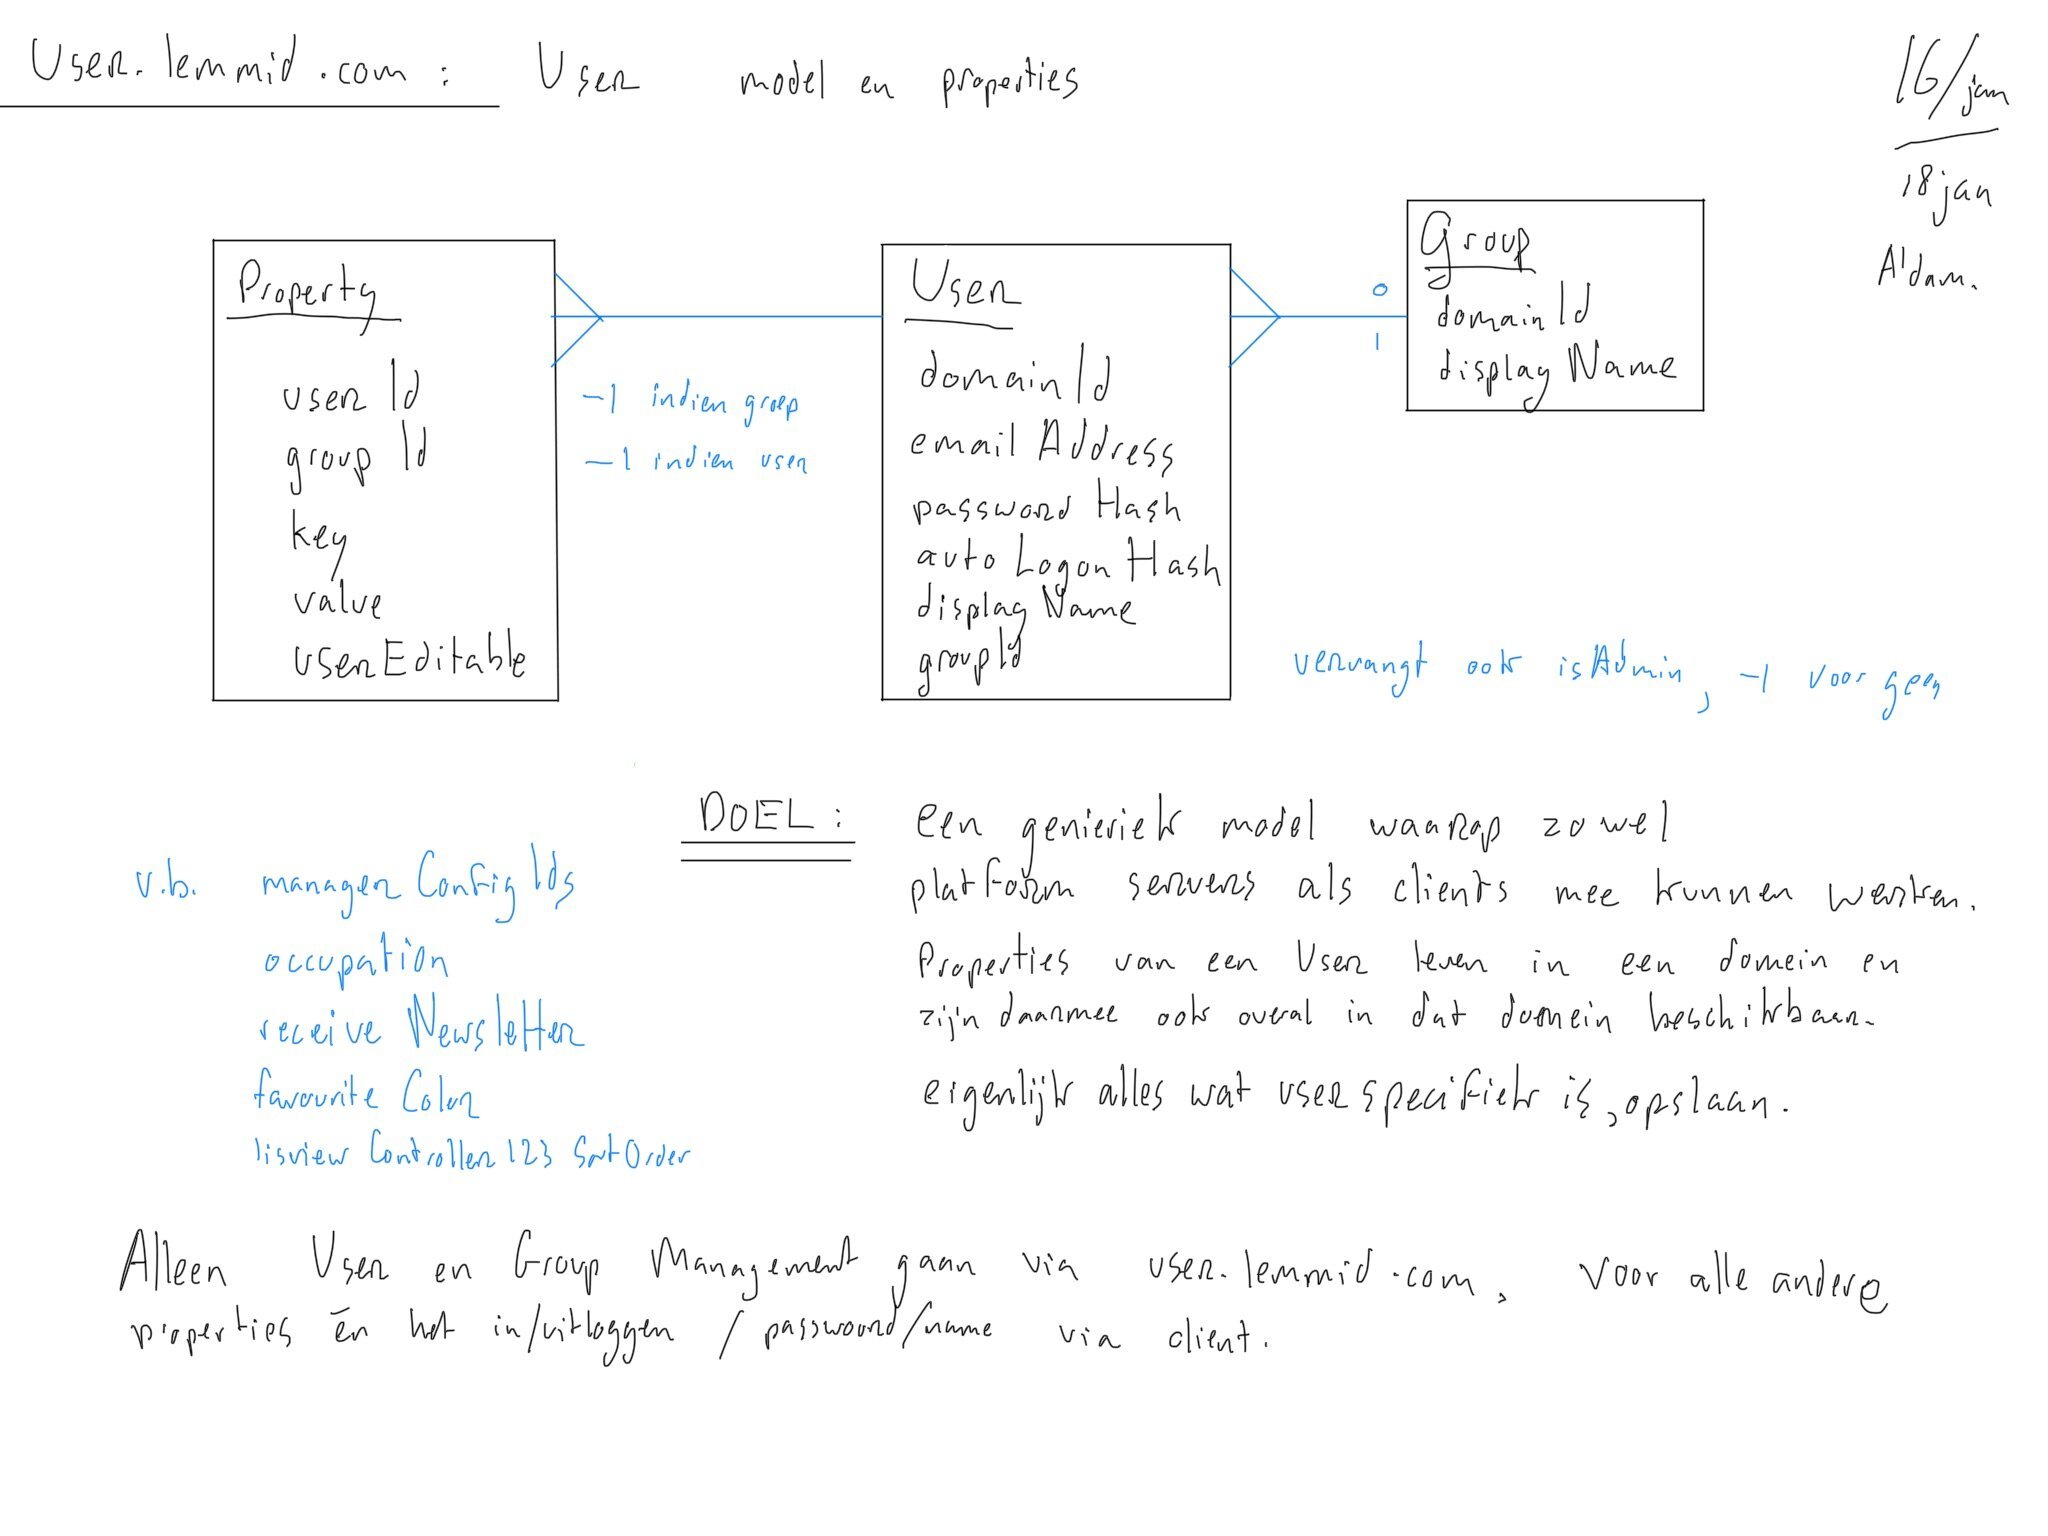 User.lemmid.com : User model en properties
16/jan
18 jan
A'dam.
Property
userId
groupId
key
value
userEditable
-1 indien groep
-1 indien user
User
domainId
emailAddress
passwordHash
autoLogonHash
displayName
groupId
0
1
Group
domainId
displayName
vervangt ook isAdmin, -1 voor geen
v.b. managerConfigIds
occupation
receiveNewsletter
favouriteColor
lisviewController123SortOrder
DOEL: een genieriek model waarop zowel
platform servers als clients mee kunnen werken.
Properties van een User leven in een domein en
zijn daarmee ook overal in dat domein beschikbaar.
eigenlijk alles wat user specifiek is, opslaan.
Alleen User en Group Management gaan via user.lemmid.com, voor alle andere
properties én het in/uitloggen / password/name via client.